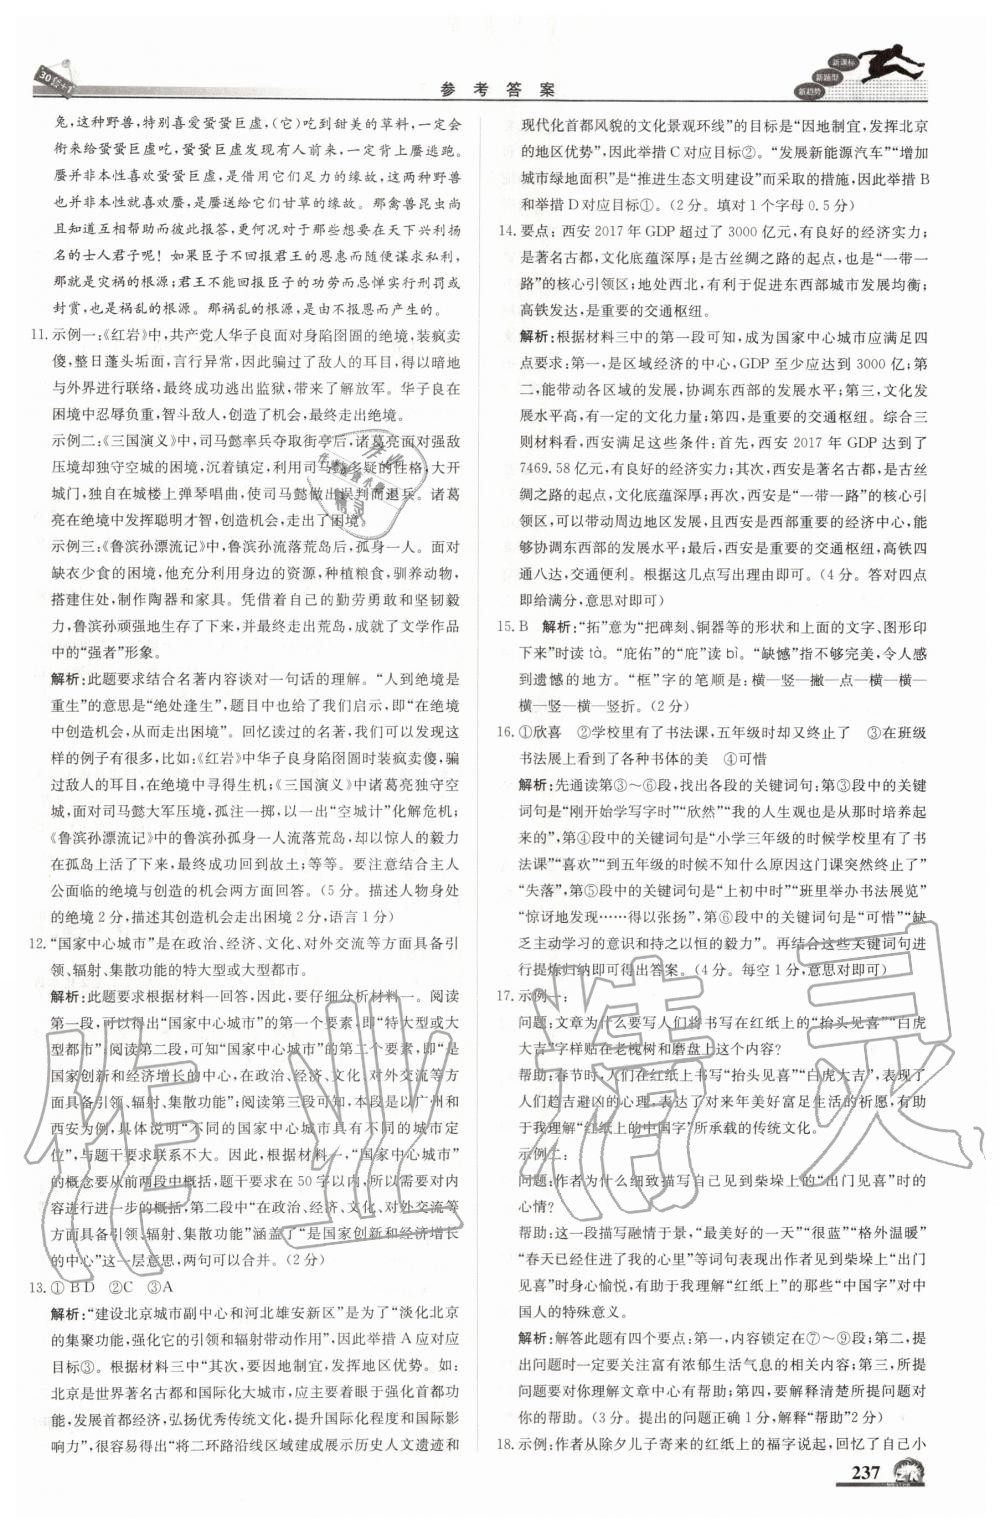 30套+1
参考答案
新课标
新题型
新趋势
兔，这种野兽，特别喜爱蛩蛩巨虚，（它）吃到甜美的草料，一定会
衔来给蛩蛩巨虚吃，蛩蛩巨虚发现有人前来，一定背着蟨逃跑。
蟨并非本性喜欢蛩蛩巨虚，是借用它们足力的缘故，这两种野兽
也并非本性喜欢蟨，是蟨送给它们甘草的缘故。那禽兽昆虫尚
且互相帮助而彼此报答，更何况那些将要想要在天下兴利扬
名的士人君子呢！如果臣子不回报君王的恩惠而随便谋求私利，
那就是灾祸的根源；君王不能回报臣子的功劳而忌惮实行刑罚或
封赏，也是祸乱的根源。那祸乱的根源，是由不报恩而产生的。
11. 示例一：《红岩》中，共产党人华子良面对身陷囹圄的绝境，装疯卖
傻，整日蓬头垢面，言行异常，因此骗过了敌人的耳目，得以暗地
与外界进行联络，最终成功逃出监狱，带来了解放军。华子良在
困境中忍辱负重，智斗敌人，创造了机会，最终走出绝境。
示例二：《三国演义》中，司马懿率兵夺取街亭后，诸葛亮面对强敌
压境却独守空城的困境，沉着镇定，利用司马懿多疑的性格，大开
城门，独自在城楼上弹琴唱曲，使司马懿做出误判而退兵。诸葛
亮在绝境中发挥聪明才智，创造机会，走出了困境。
示例三：《鲁滨孙漂流记》中，鲁滨孙流落荒岛后，孤身一人。面对
缺衣少食的困境，他充分利用身边的资源，种植粮食，驯养动物，
搭建住处，制作陶器和家具。凭借着自己的勤劳勇敢和坚韧毅
力，鲁滨孙顽强地生存了下来，并最终走出荒岛，成就了文学作品
中的“强者”形象。
解析：此题要求结合名著内容谈对一句话的理解。“人到绝境是
重生”的意思是“绝处逢生”，题目中也给了我们启示，即“在绝境
中创造奇迹，走出困境”。回忆读过的名著，我们可以发现这
样的例子有很多，比如：《红岩》中华子良身陷囹圄时装疯卖傻，骗
过敌人的耳目，在绝境中寻得生机；《三国演义》中诸葛亮独守空
城，面对司马懿大军压境，孤注一掷，以一出“空城计”化解危机；
《鲁滨孙漂流记》中的鲁滨孙孤身一人流落荒岛，却以惊人的毅力
在孤岛上活了下来，最终成功回到故土；等等。要注意结合主人
公面临的绝境与创造的机会两方面回答。（5 分。描述人物身处
的绝境 2 分，描述其创造机会走出困境 2 分，语言 1 分）
12. “国家中心城市”是在政治、经济、文化、对外交流等方面具备引
领、辐射、集散功能的特大型或大型都市。
解析：此题要求根据材料一回答，因此，要仔细分析材料一。阅读
第一段，可以得出“国家中心城市”的第一个要素，即“特大型或大
型都市”；阅读第二段，可知“国家中心城市”的第二个要素，即“是
国家创新和经济增长的中心，在政治、经济、文化、对外交流等方
面具备引领、辐射、集散功能”；阅读第三段可知，本段是以广州和
西安为例，具体说明“不同的国家中心城市具有不同的城市定
位”，与题干要求联系不大。因此，根据材料一，“国家中心城市”
的概念要从前两段中概括，题干要求在 50 字以内，所以需要对内
容进行进一步的概括，第二段中“在政治、经济、文化、对外交流等
方面具备引领、辐射、集散功能”涵盖了“是国家创新和经济增长
的中心”这一层意思，两句可以合并。（2 分）
13. ①B D　②C　③A
解析：“建设北京城市副中心和河北雄安新区”是为了“淡化北京
的集聚功能，强化它的引领和辐射带动作用”，因此举措 A 应对应
目标③。根据材料三中“其次，要因地制宜，发挥地区优势。如：
北京是世界著名古都和国际化大城市，应主要着眼于强化首都功
能，发展首都经济，弘扬优秀传统文化，提升国际化程度和国际影
响力”，很容易得出“将二环路沿线区域建成展示历史人文遗迹和
现代化首都风貌的文化景观环线”的目标是“因地制宜，发挥北京
的地区优势”，因此举措 C 对应目标②。“发展新能源汽车”“增加
城市绿地面积”是“推进生态文明建设”而采取的措施，因此举措 B
和举措 D 对应目标①。（2 分。填对 1 个字母 0.5 分）
14. 要点：西安 2017 年 GDP 超过了 3000 亿元，有良好的经济实力；
是著名古都，文化底蕴深厚；是古丝绸之路的起点，是“一带一
路”的核心引领区；地处西北，有利于促进东西部城市发展均衡；
高铁发达，是重要的交通枢纽。
解析：根据材料三中的第一段可知，成为国家中心城市应满足四
点要求：第一，是区域经济的中心，GDP 至少应达到 3000 亿；第
二，能带动各区域的发展，协调东西部的发展水平；第三，文化发
展水平高，有一定的文化力量；第四，是重要的交通枢纽。综合三
则材料看，西安满足这些条件：首先，西安 2017 年 GDP 达到了
7469.58 亿元，有良好的经济实力；其次，西安是著名古都，是古丝
绸之路的起点，文化底蕴深厚；再次，西安是“一带一路”的核心引
领区，可以带动周边地区发展，且西安是西部重要的经济中心，能
够协调东西部的发展水平；最后，西安是重要的交通枢纽，高铁四
通八达，交通便利。根据这几点写出理由即可。（4 分。答对四点
即给满分，意思对即可）
15. B　解析：“拓”意为“把碑刻、铜器等的形状和上面的文字、图形印
下来”时读 tà。“庇佑”的“庇”读 bì。“缺憾”指不够完美，令人感
到遗憾的地方。“框”字的笔顺是：横—竖—撇—点—横—横—
横—竖—横—竖折。（2 分）
16. ①欣喜　②学校里有了书法课，五年级时却又终止了　③在班级
书法展上看到了各种书体的美　④可惜
解析：先通读第③～⑥段，找出各段的关键词句：第③段中的关键
词句是“刚开始学写字时”“欣然”“我的人生观也是从那时培养起
来的”，第④段中的关键词句是“小学三年级的时候学校里有了书
法课”“喜欢”“到五年级的时候不知什么原因这门课突然终止了”
“失落”，第⑤段中的关键词句是“上初中时”“班里举办书法展览”
“惊讶地发现……得以张扬”，第⑥段中的关键词句是“可惜”“缺
乏主动学习的意识和持之以恒的毅力”。再结合这些关键词句进
行提炼归纳即可得出答案。（4 分。每空 1 分，意思对即可）
17. 示例一：
问题：文章为什么要写人们将书写在红纸上的“抬头见喜”“白虎
大吉”字样贴在老槐树和磨盘上这个内容？
帮助：春节时，人们在红纸上书写“抬头见喜”“白虎大吉”，表现了
人们趋吉避凶的心理，表达了对来年美好富足生活的祈愿，有助
于我理解“红纸上的中国字”所承载的传统文化。
示例二：
问题：作者为什么细致描写自己见到柴垛上的“出门见喜”时的
心情？
帮助：这一段描写融情于景，“最美好的一天”“很蓝”“格外温暖”
“春天已经住进了我的心里”等词句表现出作者见到柴垛上“出门
见喜”时身心愉悦，有助于我理解“红纸上”的那些“中国字”对中
国人的特殊意义。
解析：解答此题有四个要点：第一，内容锁定在⑦～⑨段；第二，提
出问题时一定要关注富有浓郁生活气息的相关内容；第三，所提
出的问题要对理解文章中心有帮助；第四，要解释清楚所提问题
对你的帮助。（3 分。提出的问题正确 1 分，解释“帮助”2 分）
18. 示例：作者从除夕儿子寄来的红纸上的福字说起，回忆了自己小
237
作业精灵